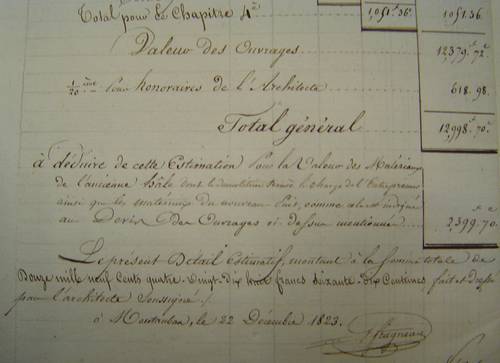 Total pour le Chapitre 4e 1,051f 36c 1051.36
Valeur des Ouvrages 12,379f 72c
1/20 ème Pour honoraires de l'Architecte 618.98.
Total général 12,998f 70c
à déduire de cette Estimation pour la Valeur des Matériaux
de l'ancienne hâle dont la démolition sera à la charge de l'Entrepreneur
ainsi que les matériaux du nouveau puis, comme indiqué
au Devis des Ouvrages ci-dessus mentionné 2,399.70
Le présent Détail Estimatif, montant à la somme totale de
Douze mille neuf cents quatre-vingt-dix huit francs soixante-dix Centimes fait et dressé
par l'architecte Soussigné.
à Montauban, le 22 Décembre 1823.